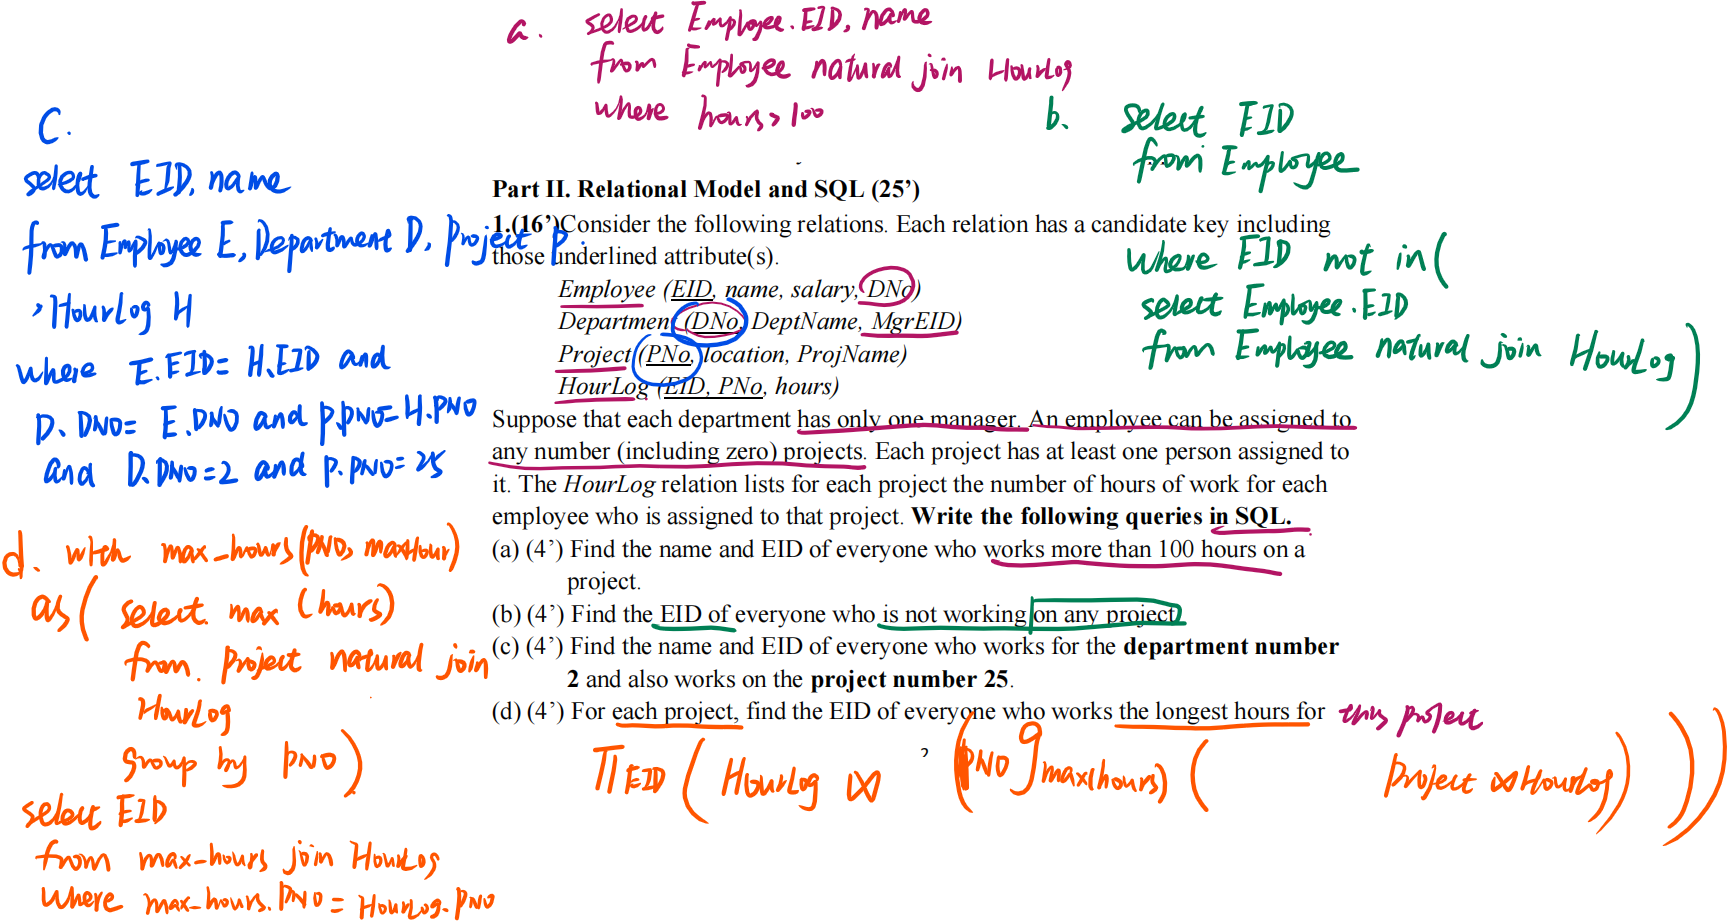 a. select Employee.EID, name
from Employee natural join HourLog
where hours>100
b. select EID
from Employee
where EID not in(
select Employee.EID
from Employee natural join HourLog)
C.
select EID, name
from Employee E, Department D, Project P.
, HourLog H
where E.EID= H.EID and
D.DNO= E.DNO and P.PNO=H.PNO
and D.DNO=2 and P.PNO=25
Part II. Relational Model and SQL (25’)
1.(16’)Consider the following relations. Each relation has a candidate key including
those underlined attribute(s).
Employee (EID, name, salary, DNo)
Department (DNo, DeptName, MgrEID)
Project (PNo, location, ProjName)
HourLog (EID, PNo, hours)
Suppose that each department has only one manager. An employee can be assigned to
any number (including zero) projects. Each project has at least one person assigned to
it. The HourLog relation lists for each project the number of hours of work for each
employee who is assigned to that project. Write the following queries in SQL.
(a) (4’) Find the name and EID of everyone who works more than 100 hours on a
project.
(b) (4’) Find the EID of everyone who is not working on any project
(c) (4’) Find the name and EID of everyone who works for the department number
2 and also works on the project number 25.
(d) (4’) For each project, find the EID of everyone who works the longest hours for this project
d. with max-hours(PNO, maxHour)
as( select max (hours)
from Project natural join
HourLog
group by PNO)
select EID
from max-hours join HourLog
where max-hours.PNO = HourLog.PNO
Π EID ( HourLog ⋈ (PNO g max(hours) ( Project ⋈ HourLog) ) ) )